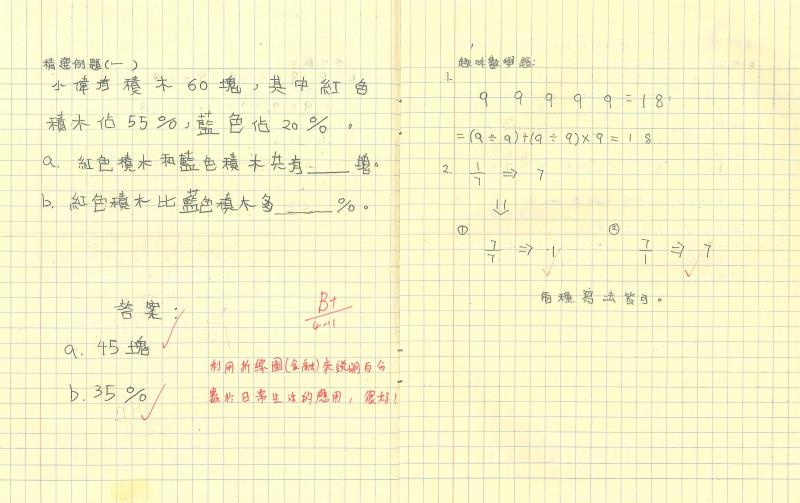 精選例題(一)
小偉有積木60塊,其中紅色
積木佔55%,藍色佔20%。
a. 紅色積木和藍色積木共有____塊。
b. 紅色積木比藍色積木多____%。
答案:
a. 45塊
b. 35%
B+
4-11
利用折線圖(金融)來說明百分
數於日常生活的應用,很好!
趣味數學題:
1.
9 9 9 9 9 = 18
= (9÷9)+(9÷9)×9 = 18
2. 1/7 ⇒ 7
⇓
① 7/7 ⇒ 1
② 7/1 ⇒ 7
兩種寫法皆可。